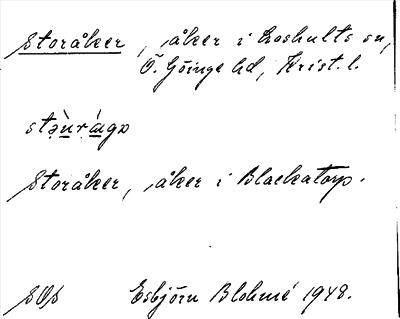 Storåker, åker i Loshults sn,
Ö. Göinge hd, Krist. l.
stə̀ùr áagə
Storåker, åker i Blackatorp.
SOs Esbjörn Blohmé 1948.